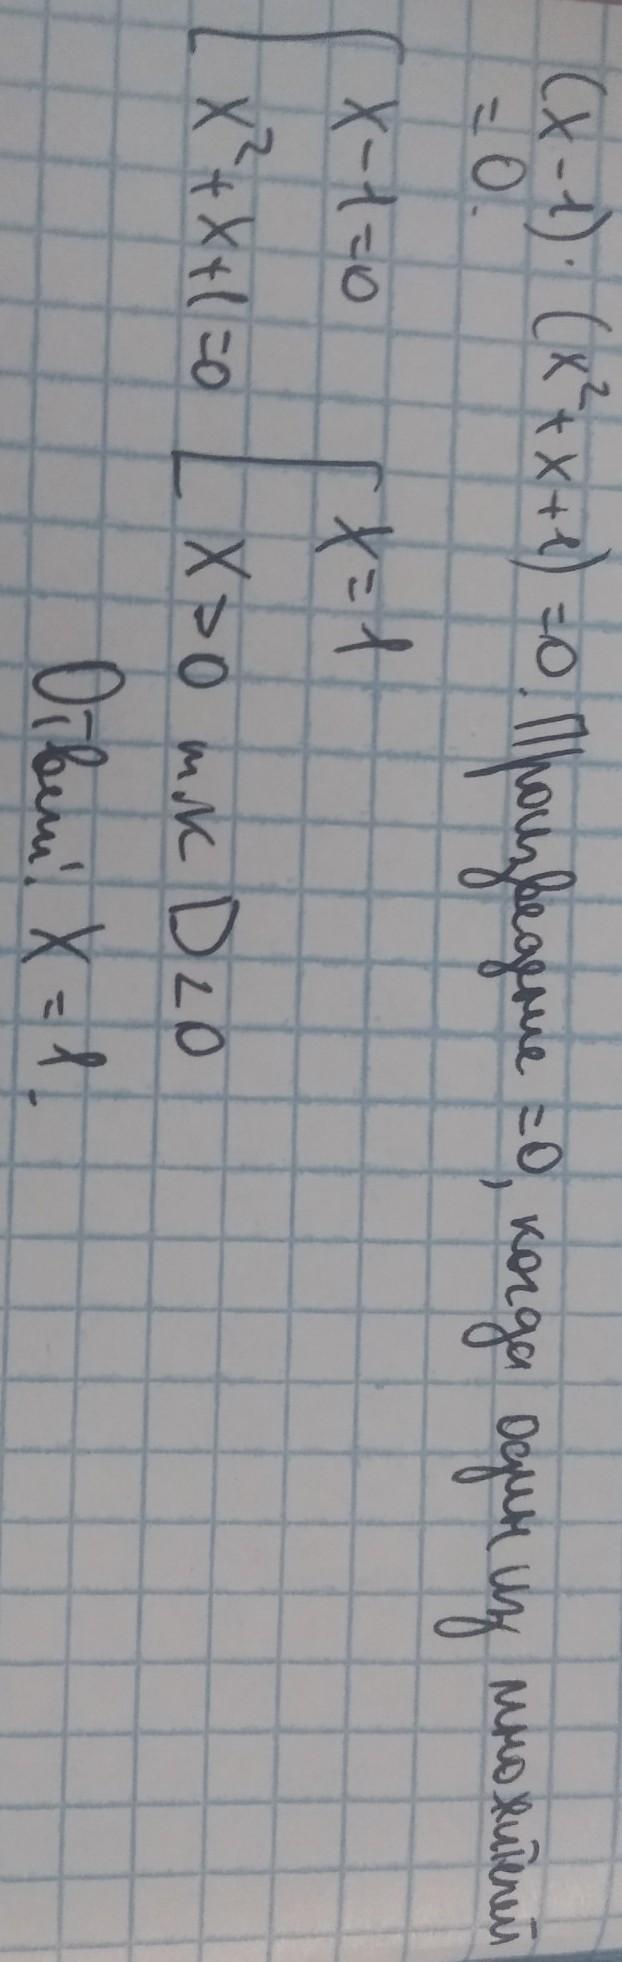 (x-1)·(x²+x+1)=0. Произведение =0, когда один из множителей
=0.
[ x-1=0 [ x=1
x²+x+1=0 x>0 тк D<0
Ответ: x=1.